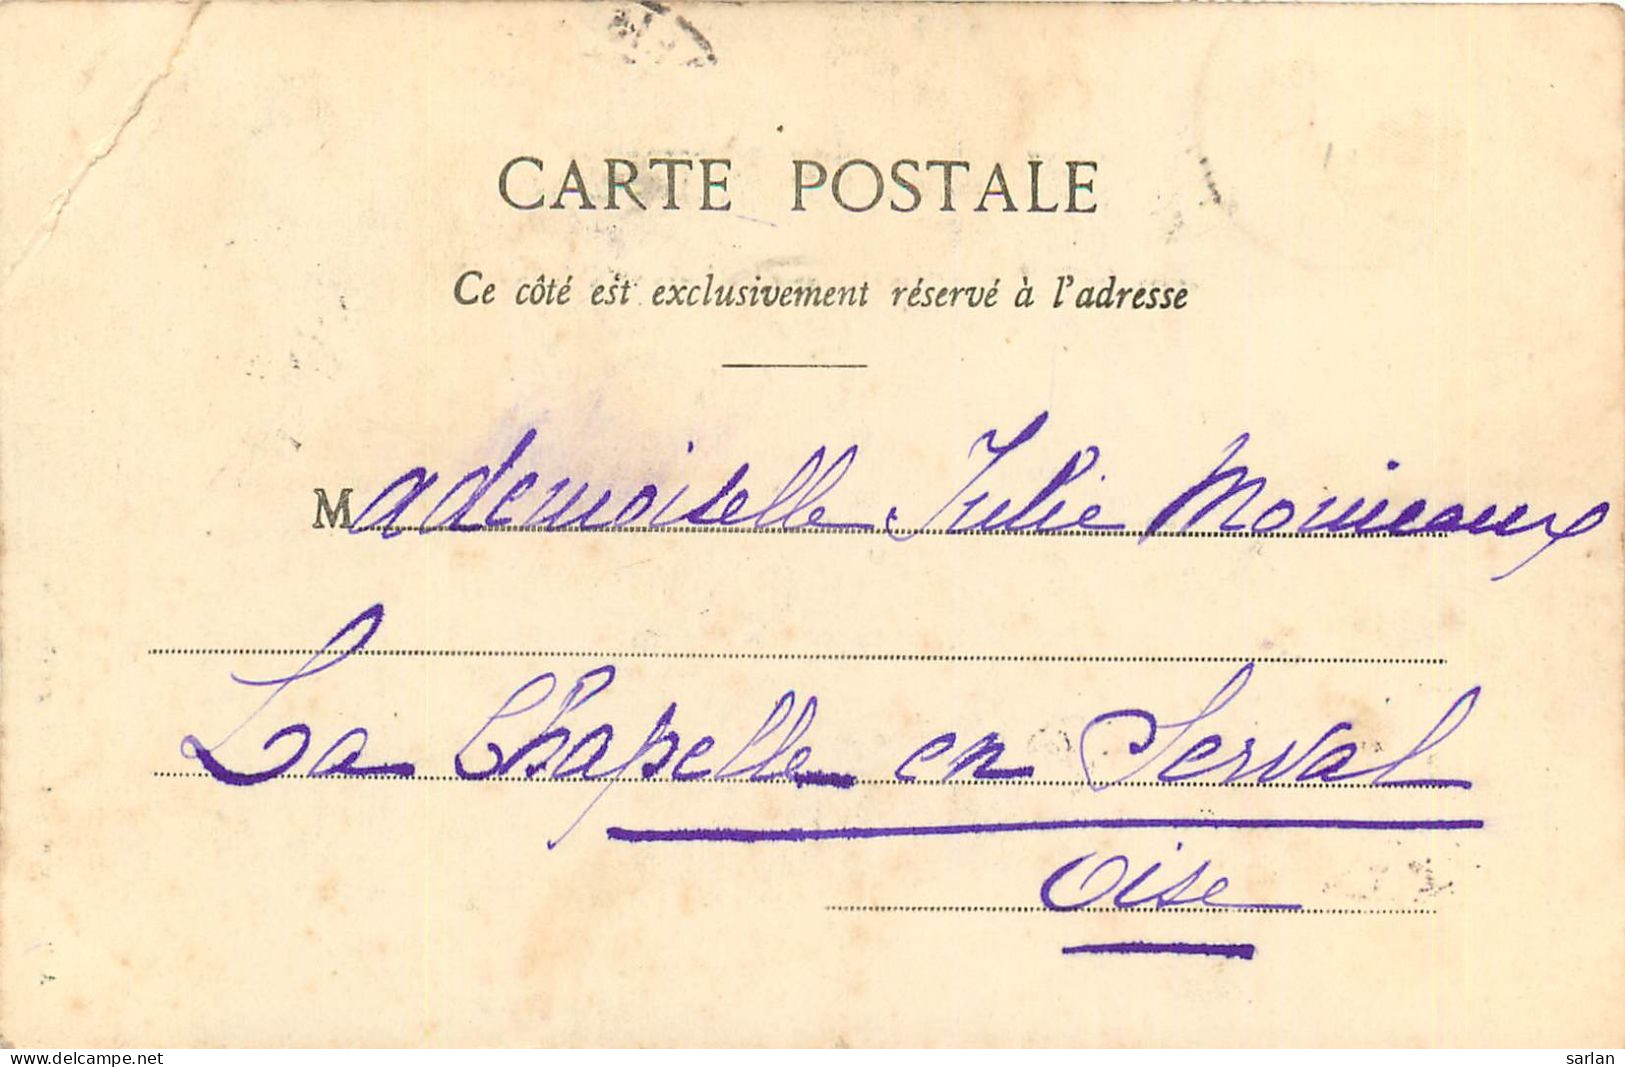 CARTE POSTALE
Ce côté est exclusivement réservé à l'adresse
Mademoiselle Julie
La Chapelle en Serval
Oise
www.delcampe.net
sarlan